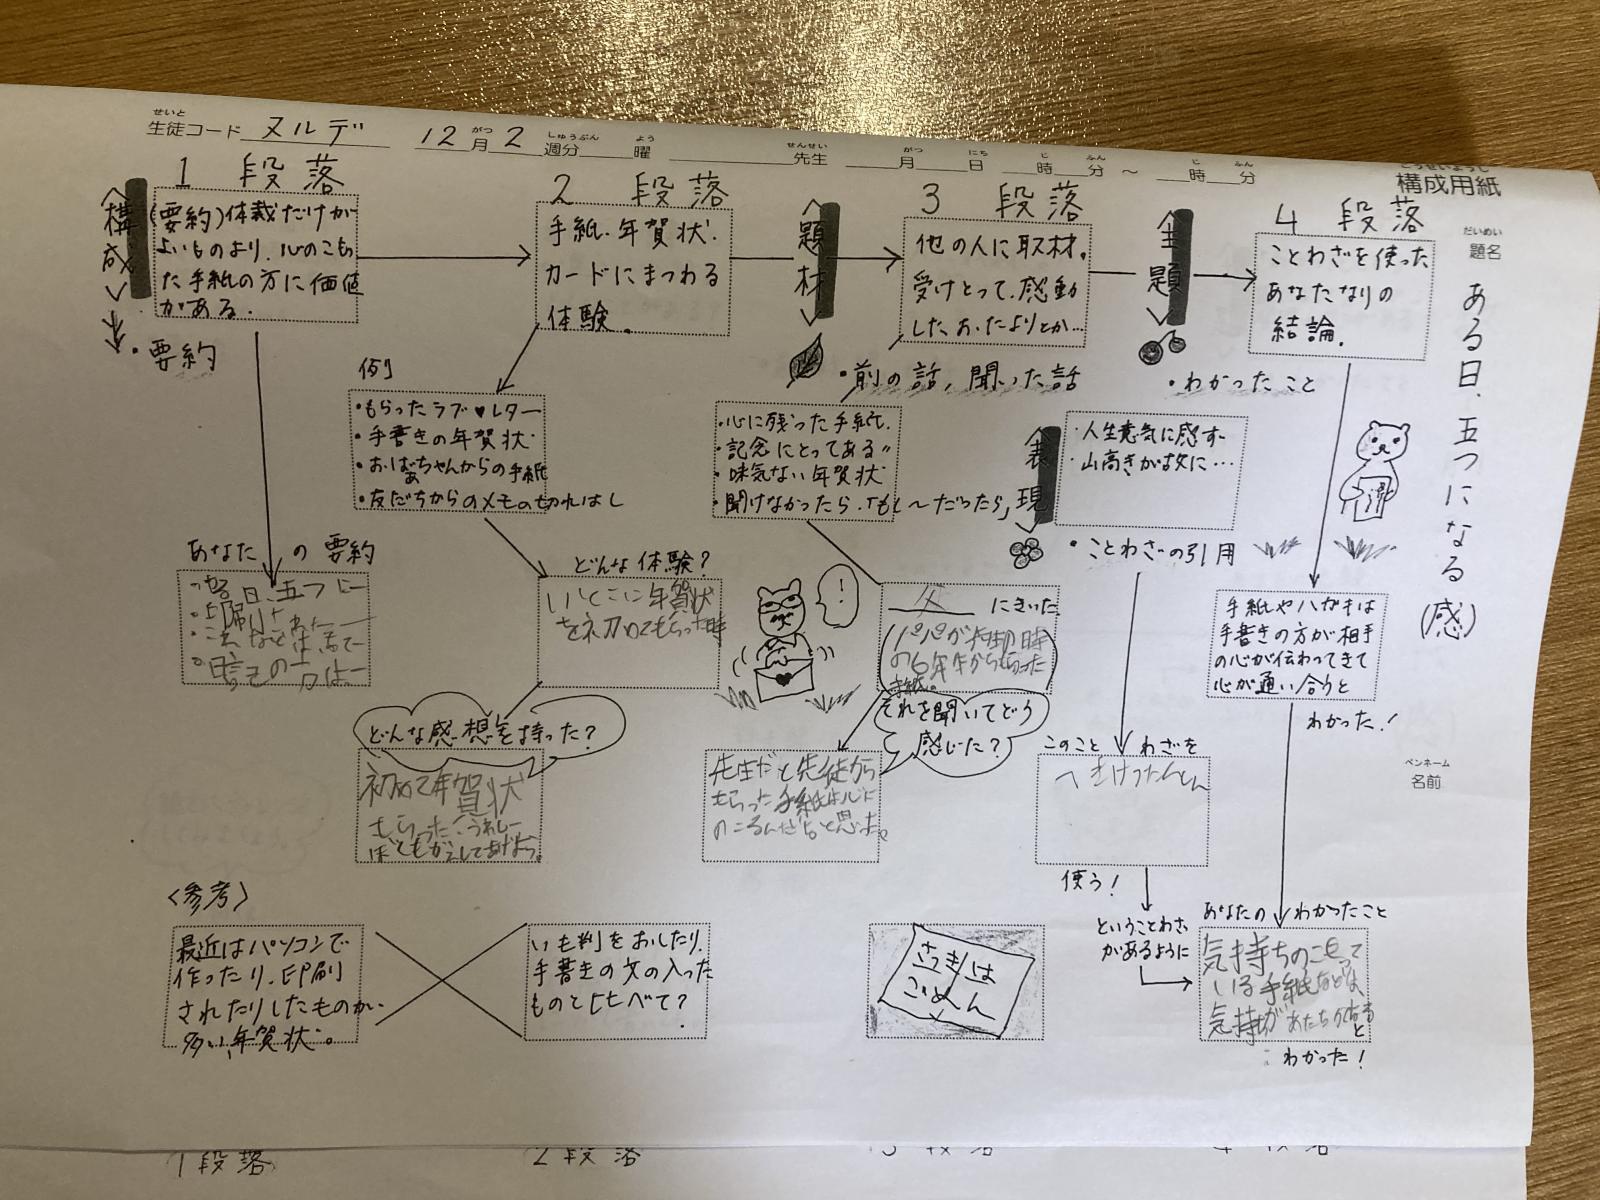 せいと
生徒コード ヌルデ 12月 2 週分 曜 先生 月 日 時 分 ～ 時 分
がつ しゅうぶん よう せんせい がつ にち じ ふん じ ふん
構成用紙
だいめい
題名
ある日、五つになる
(感)
ペンネーム
名前
1 段落
<構成>
(要約)体裁だけが
よいものより、心のこもっ
た手紙の方に価値
がある。
・要約
あなたの要約
2 段落
手紙、年賀状、
カードにまつわる
体験。
例
・もらったラブ♥レター
・手書きの年賀状
・おばあちゃんからの手紙
・友だちからのメモの切れはし
どんな体験?
いとこに年賀状
を初めてもらった時
どんな感想を持った?
初めて年賀状
<題材>
3 段落
他の人に取材。
受けとって、感動
した、おたよりとか…
・前の話, 聞いた話
・心に残った手紙。
・記念にとってある〃
・味気ない年賀状
・聞けなかったら、「もし～だったら」
父 にきいた
パパが
の6年生からもらった
手紙。
それを聞いてどう
感じた?
先生だと生徒から
もらった手紙は心に
のこるんだなと思った。
!
<主題>
・わかったこと
4 段落
ことわざを使った
あなたなりの
結論。
<表現>
・人生意気に感ず
・山高きが故に…
・ことわざの引用
手紙やハガキは
手書きの方が相手
の心が伝わってきて
心が通い合うと
わかった!
このことわざを
使う!
ということわざ
があるように
あなたのわかったこと
気持ちのこもって
いる手紙などは、
気持ちが
と
わかった!
<参考>
最近はパソコンで
作ったり、印刷
されたりしたものが、
多い、年賀状。
いも判をおしたり、
手書きの文の入った
ものと比べて?
1段落
2段落
3 段落
4 段落